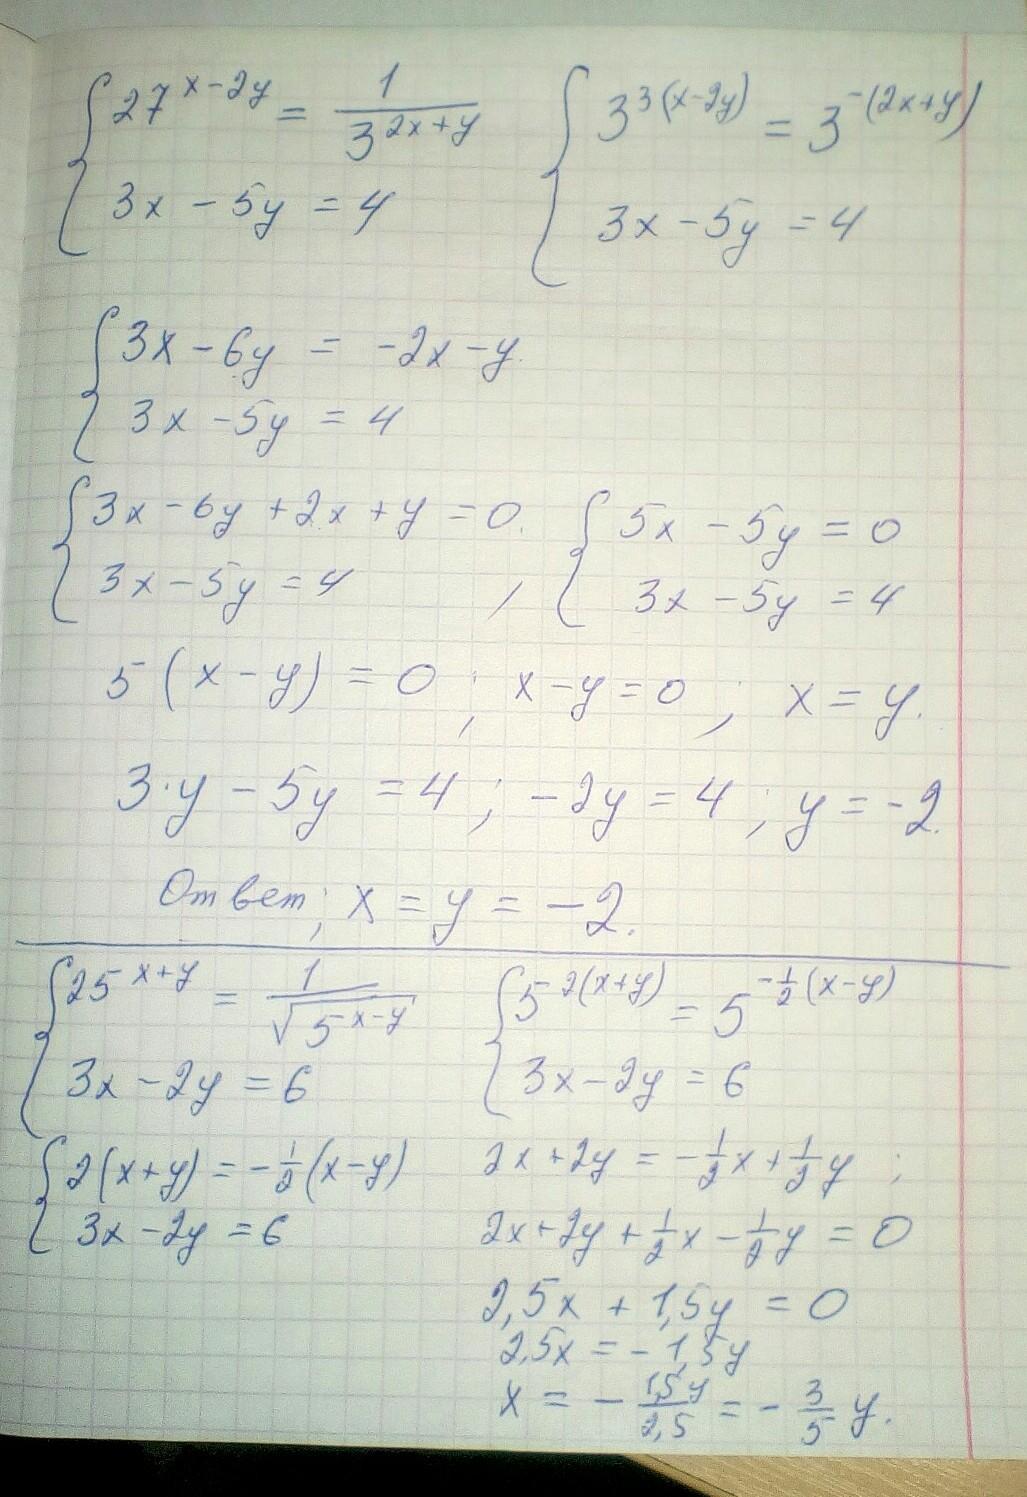 { 27^(x-2y) = 1/3^(2x+y)    { 3^(3(x-2y)) = 3^(-(2x+y))
{ 3x - 5y = 4    { 3x - 5y = 4
{ 3x - 6y = -2x - y.
{ 3x - 5y = 4
{ 3x - 6y + 2x + y = 0.    { 5x - 5y = 0
{ 3x - 5y = 4 ,    { 3x - 5y = 4
5(x - y) = 0 ; x - y = 0 ; x = y.
3·y - 5y = 4 ; -2y = 4 ; y = -2.
Ответ; x = y = -2.
{ 25^(x+y) = 1/√(5^(x-y))    { 5^(2(x+y)) = 5^(-1/2(x-y))
{ 3x - 2y = 6    { 3x - 2y = 6
{ 2(x+y) = -1/2(x-y)    2x + 2y = -1/2x + 1/2y ;
{ 3x - 2y = 6    2x + 2y + 1/2x - 1/2y = 0
2,5x + 1,5y = 0
2,5x = -1,5y
x = - 1,5y/2,5 = - 3/5 y.